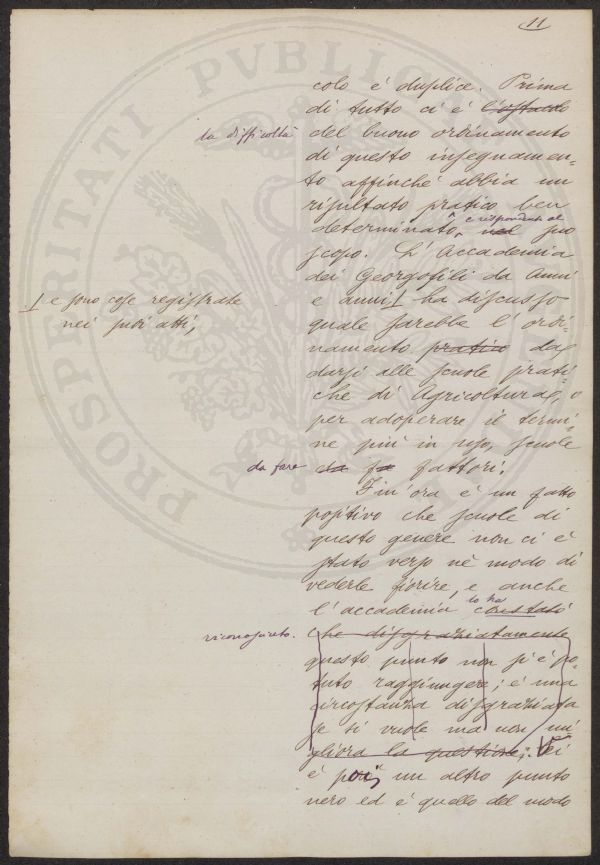 11
colo è duplice. Prima
di tutto ci è l'ostacolo
la difficoltà
del buono ordinamento
di questo insegnamen-
to affinchè abbia un
risultato pratico ben
determinato, e rispondente al nel suo
scopo. L'Accademia
dei Georgofili da anni
e anni ha discusso
e sono cose registrate
nei suoi atti,
quale sarebbe l'ordi-
namento pratico da
darsi alle scuole prati-
che di Agricoltura, o
per adoperare il termi-
ne più in uso, scuole
da fare
da fa fattori.
Fin'ora è un fatto
positivo che scuole di
questo genere non ci è
stato verso nè modo di
vederle fiorire, e anche
l'accademia lo ha constatò
riconosciuto.
che disgraziatamente
questo punto non si è po-
tuto raggiungere; è una
circostanza disgraziata
se si vuole ma non mi
gliora la questione; Vi
è poi, un altro punto
nero ed è quello del modo
PROSPERITATI PUBLICAE